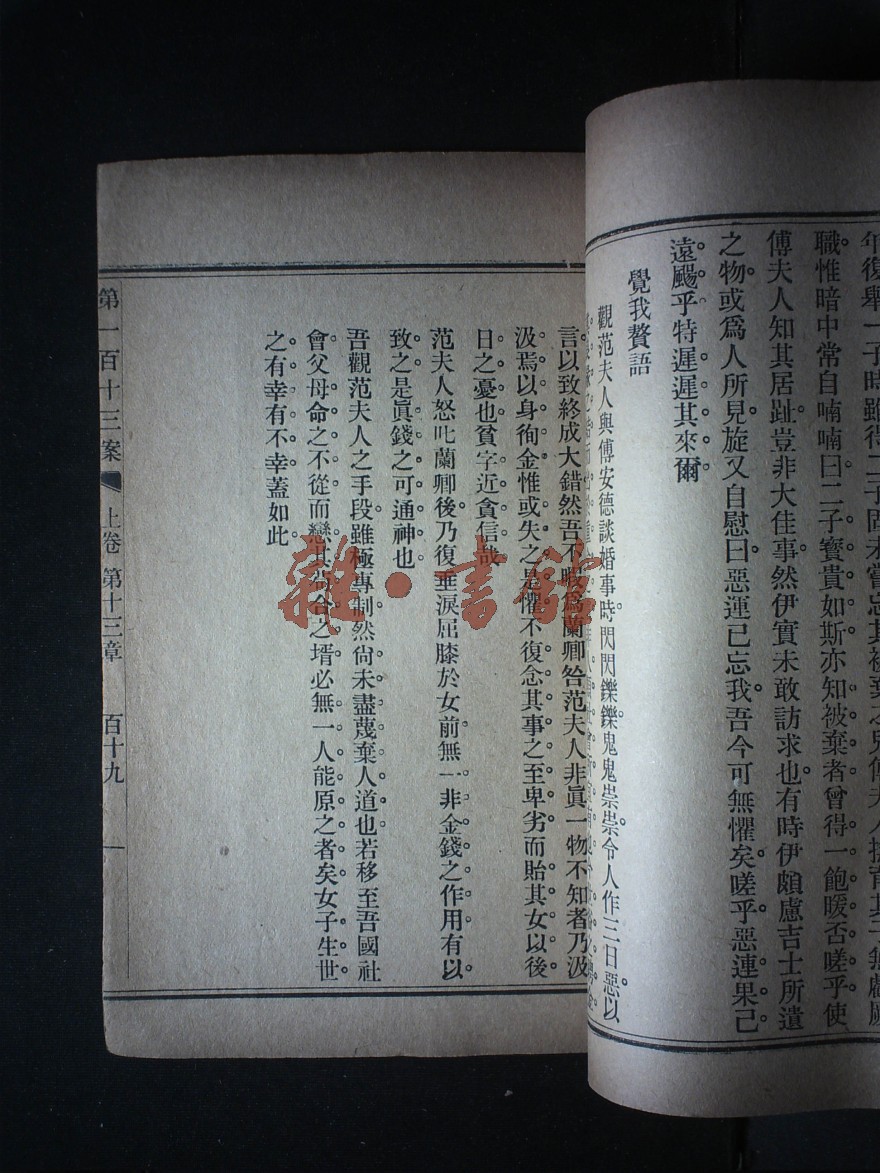 年復舉一子時雖得二子固未嘗忘其被棄之兒傅夫人撫育其子無
職惟暗中常自喃喃曰二子寶貴如斯亦知被棄者曾得一飽暖否嗟乎使
傅夫人知其居趾豈非大佳事然伊實未敢訪求也有時伊頗慮吉士所遺
之物或爲人所見旋又自慰曰惡運已忘我吾今可無懼矣嗟乎惡連果己
遠颺乎特遲遲其來爾
覺我贅語
觀范夫人與傅安德談婚事時閃閃鑠鑠鬼鬼祟祟令人作三日惡以
言以致終成大錯然吾不暇爲蘭卿咎范夫人非眞一物不知者乃汲
汲焉以身徇金惟或失之是懼不復念其事之至卑劣而貽其女以後
日之憂也貧字近貪信哉
范夫人怒叱蘭卿後乃復垂淚屈膝於女前無一非金錢之作用有以
致之是眞錢之可通神也
吾觀范夫人之手段雖極專制然尙未盡蔑棄人道也若移至吾國社
會父母命之不從而戀其尙合之壻必無一人能原之者矣女子生世
之有幸有不幸蓋如此
第一百十三案 上卷 第十三章 百十九
雜·書館